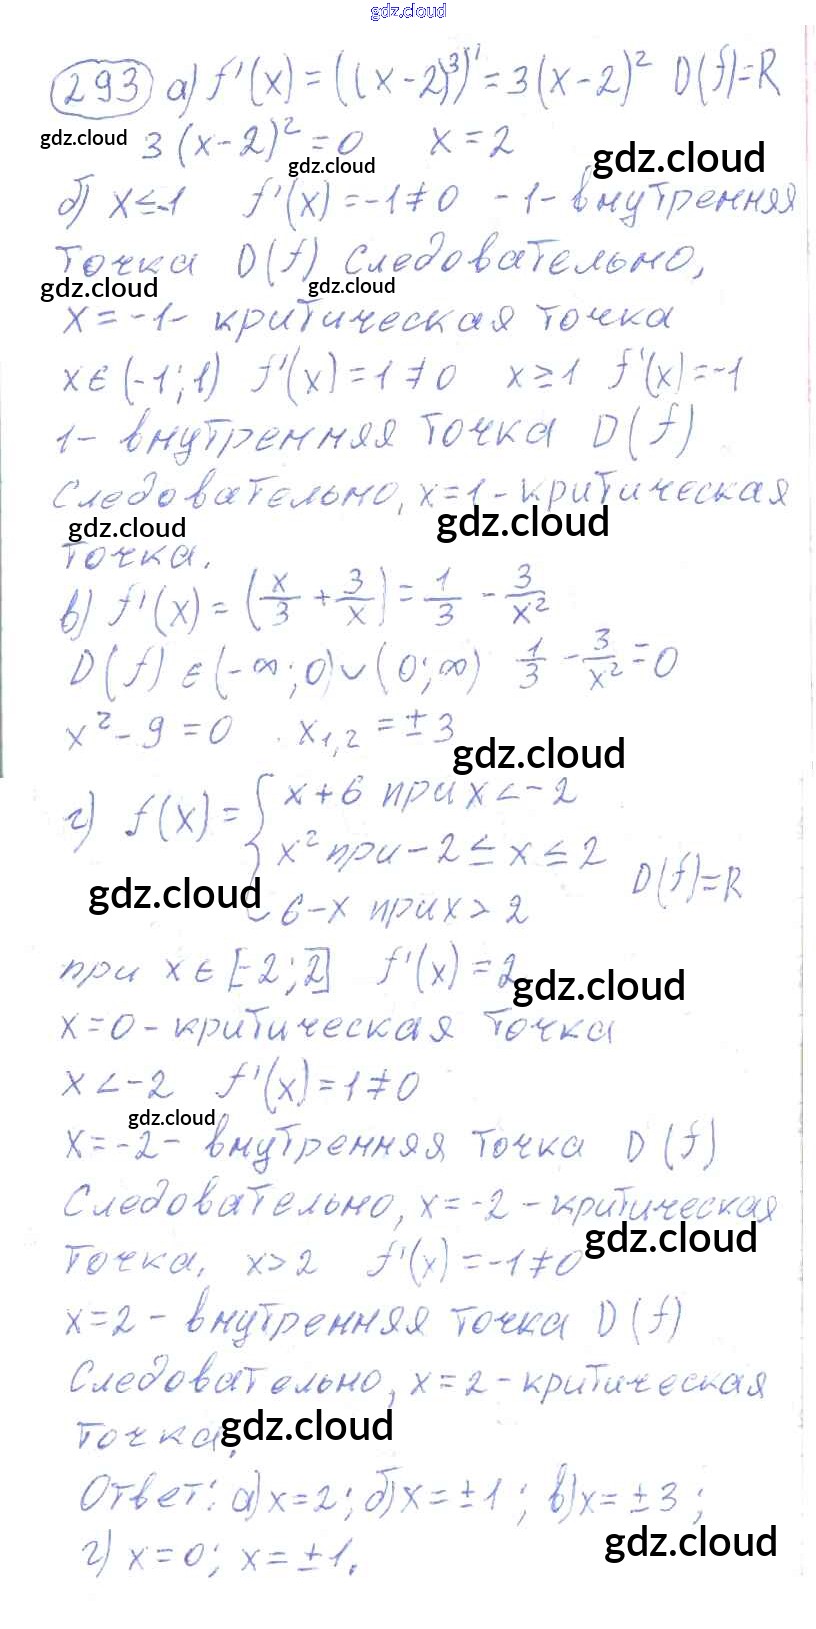 gdz.cloud
293 а) f'(x) = ((x-2)³)' = 3(x-2)² D(f)=R
gdz.cloud 3(x-2)² = 0 x = 2 gdz.cloud
gdz.cloud
б) x≤-1 f'(x) = -1≠0 -1- внутренняя
точка D(f) Следовательно,
gdz.cloud gdz.cloud
x = -1- критическая точка
x∈(-1;1) f'(x)=1≠0 x≥1 f'(x)=-1
1- внутренняя точка D(f)
Следовательно, x=1-критическая
gdz.cloud gdz.cloud
точка.
в) f'(x) = (x/3 + 3/x) = 1/3 - 3/x²
D(f)∈(-∞;0)∪(0;∞) 1/3 - 3/x² = 0
x²-9=0 . x₁,₂ = ±3
gdz.cloud
г) f(x) = { x+6 при x<-2
x² при -2≤x≤2
D(f)=R
gdz.cloud 6-x при x>2
при x∈[-2;2] f'(x)=2
gdz.cloud
x=0-критическая точка
x<-2 f'(x)=1≠0
gdz.cloud
x=-2- внутренняя точка D(f)
Следовательно, x=-2-критическая
gdz.cloud
точка, x>2 f'(x)=-1≠0
x=2- внутренняя точка D(f)
Следовательно, x=2-критическая
точка. gdz.cloud
Ответ: а) x=2; б) x=±1; в) x=±3;
г) x=0; x=±1. gdz.cloud